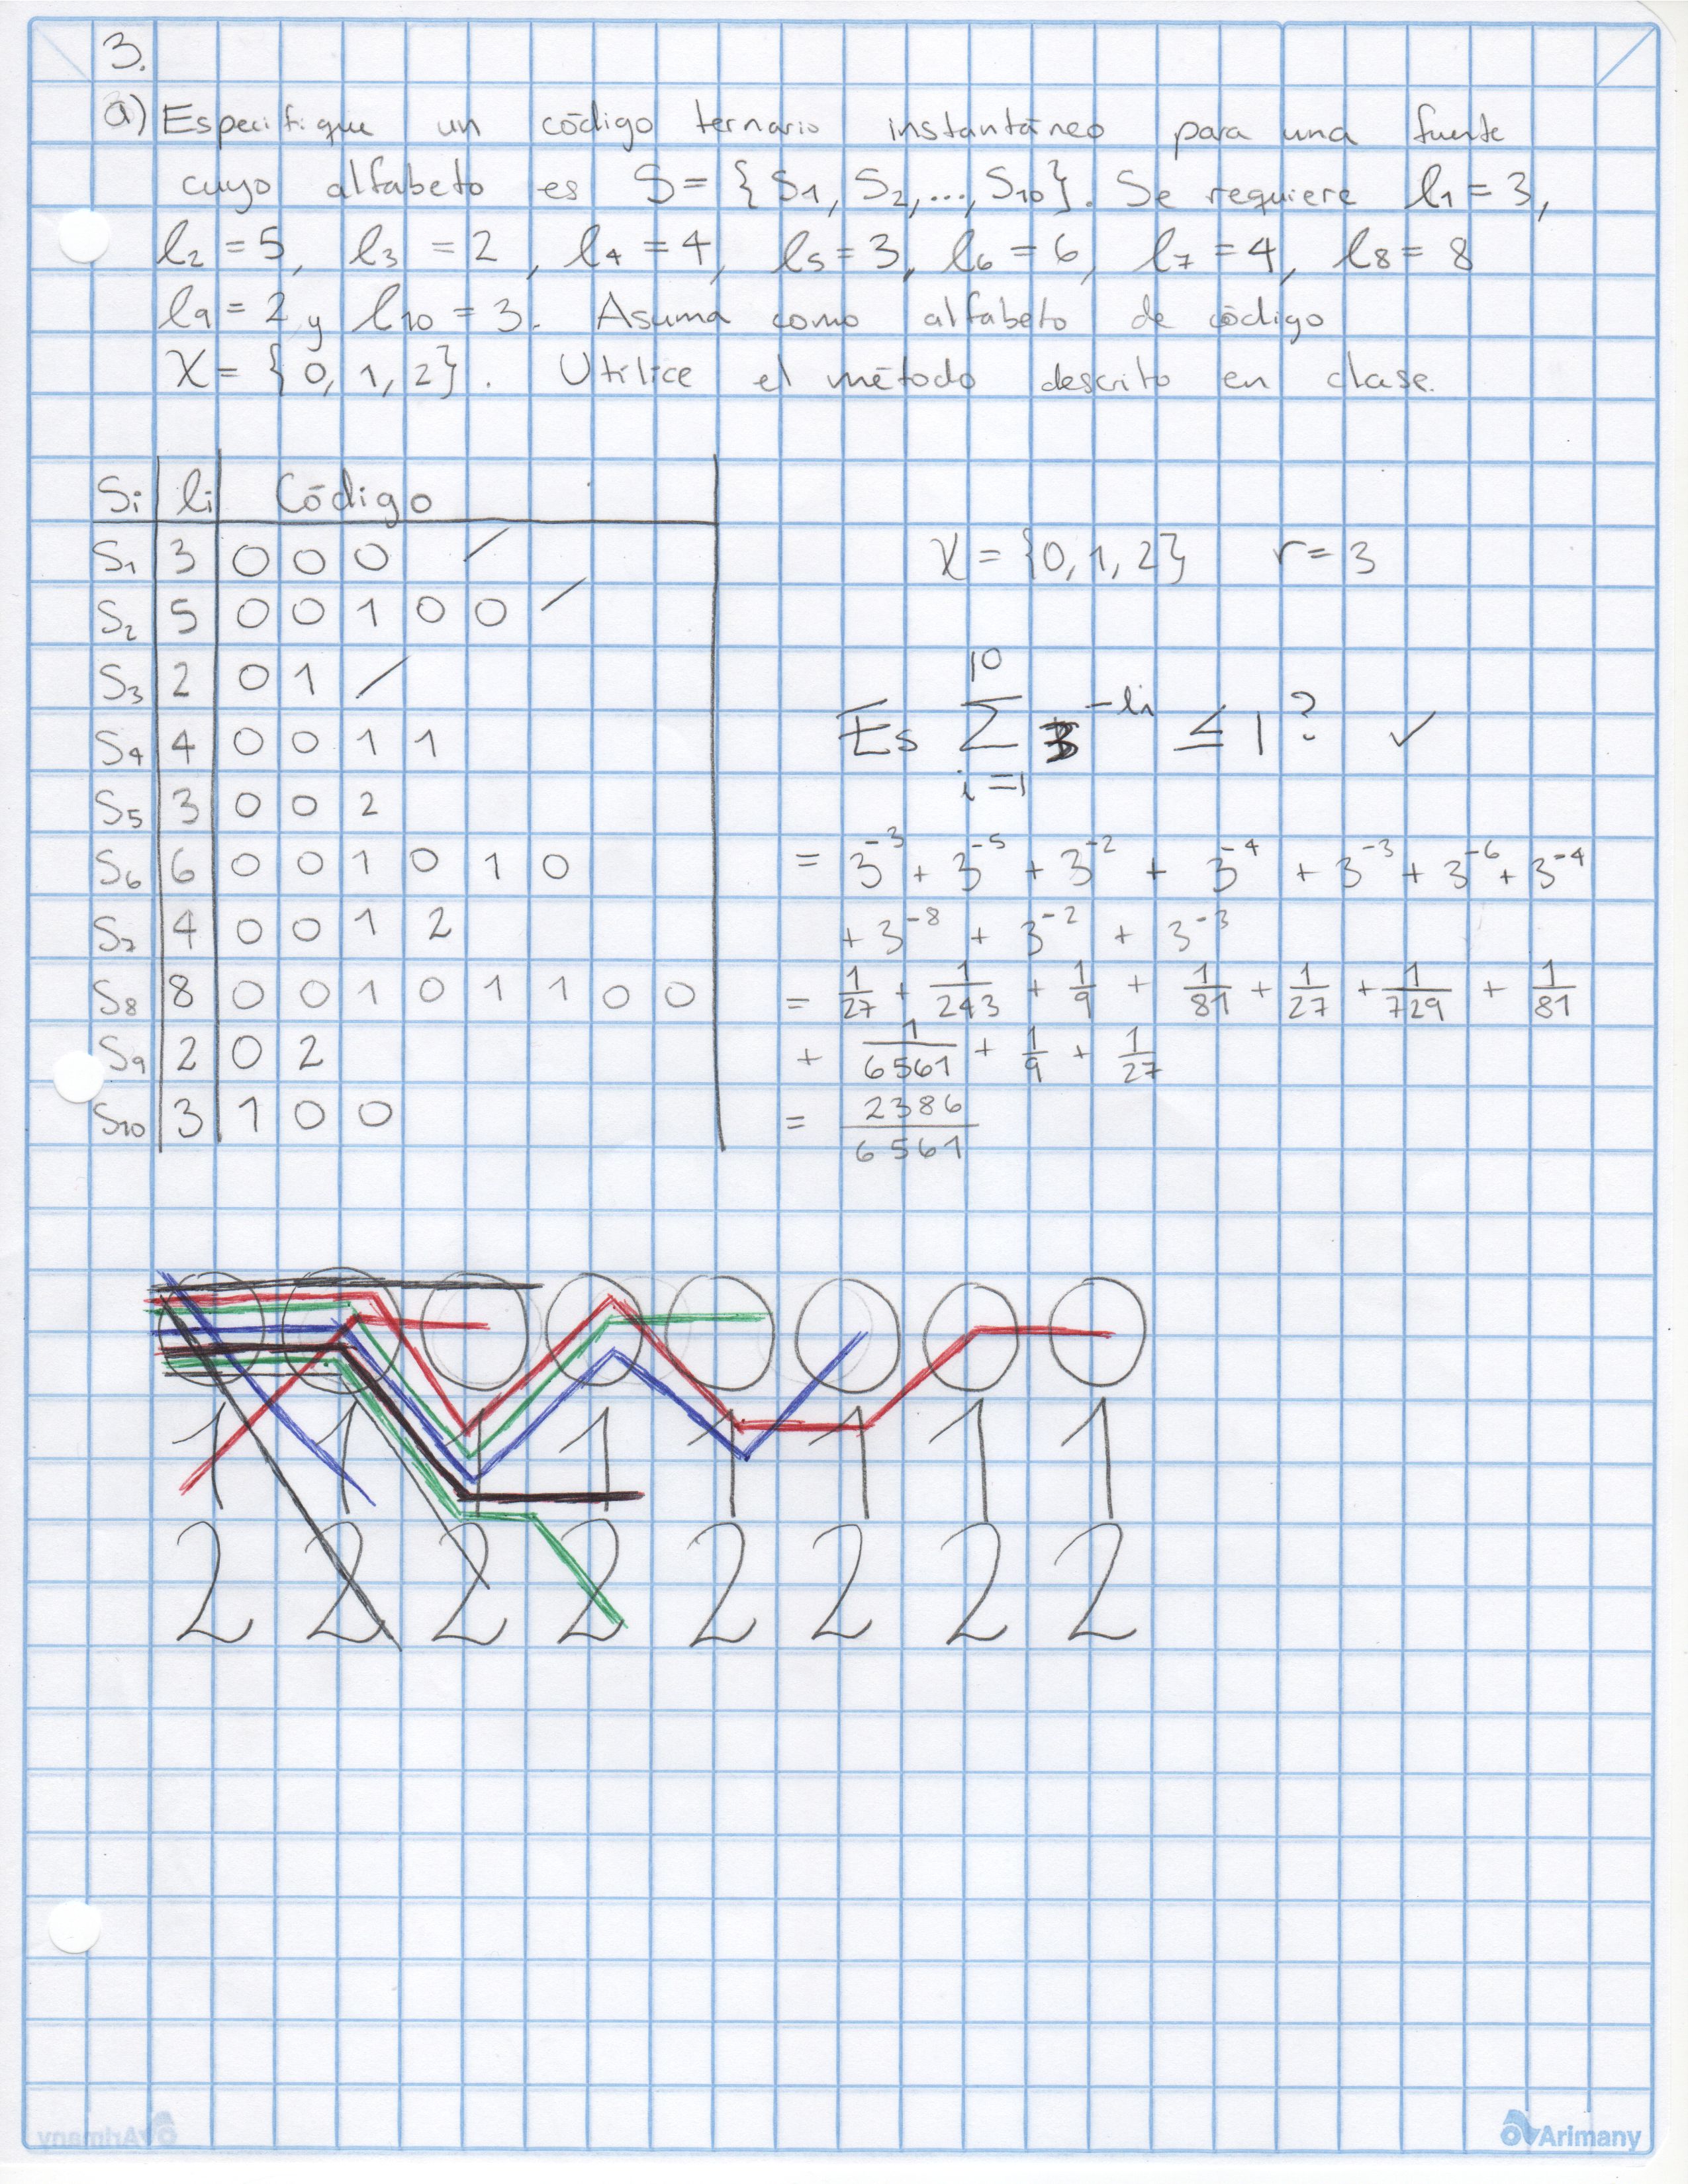 3.
a) Especifique un código ternario instantáneo para una fuente
cuyo alfabeto es S = {S1, S2, ..., S10}. Se requiere l1 = 3,
l2 = 5, l3 = 2, l4 = 4, l5 = 3, l6 = 6, l7 = 4, l8 = 8
l9 = 2 y l10 = 3. Asuma como alfabeto de código
X = {0, 1, 2}. Utilice el método descrito en clase.
Si li Código
S1 3 0 0 0
S2 5 0 0 1 0 0
S3 2 0 1
S4 4 0 0 1 1
S5 3 0 0 2
S6 6 0 0 1 0 1 0
S7 4 0 0 1 2
S8 8 0 0 1 0 1 1 0 0
S9 2 0 2
S10 3 1 0 0
X = {0, 1, 2} r = 3
Es ∑_{i=1}^{10} 3^{-li} ≤ 1? ✓
= 3^{-3} + 3^{-5} + 3^{-2} + 3^{-4} + 3^{-3} + 3^{-6} + 3^{-4}
+ 3^{-8} + 3^{-2} + 3^{-3}
= 1/27 + 1/243 + 1/9 + 1/81 + 1/27 + 1/729 + 1/81
+ 1/6561 + 1/9 + 1/27
= 2386/6561
0 0 0 0 0 0 0 0
1 1 1 1 1 1 1 1
2 2 2 2 2 2 2 2
Arimany